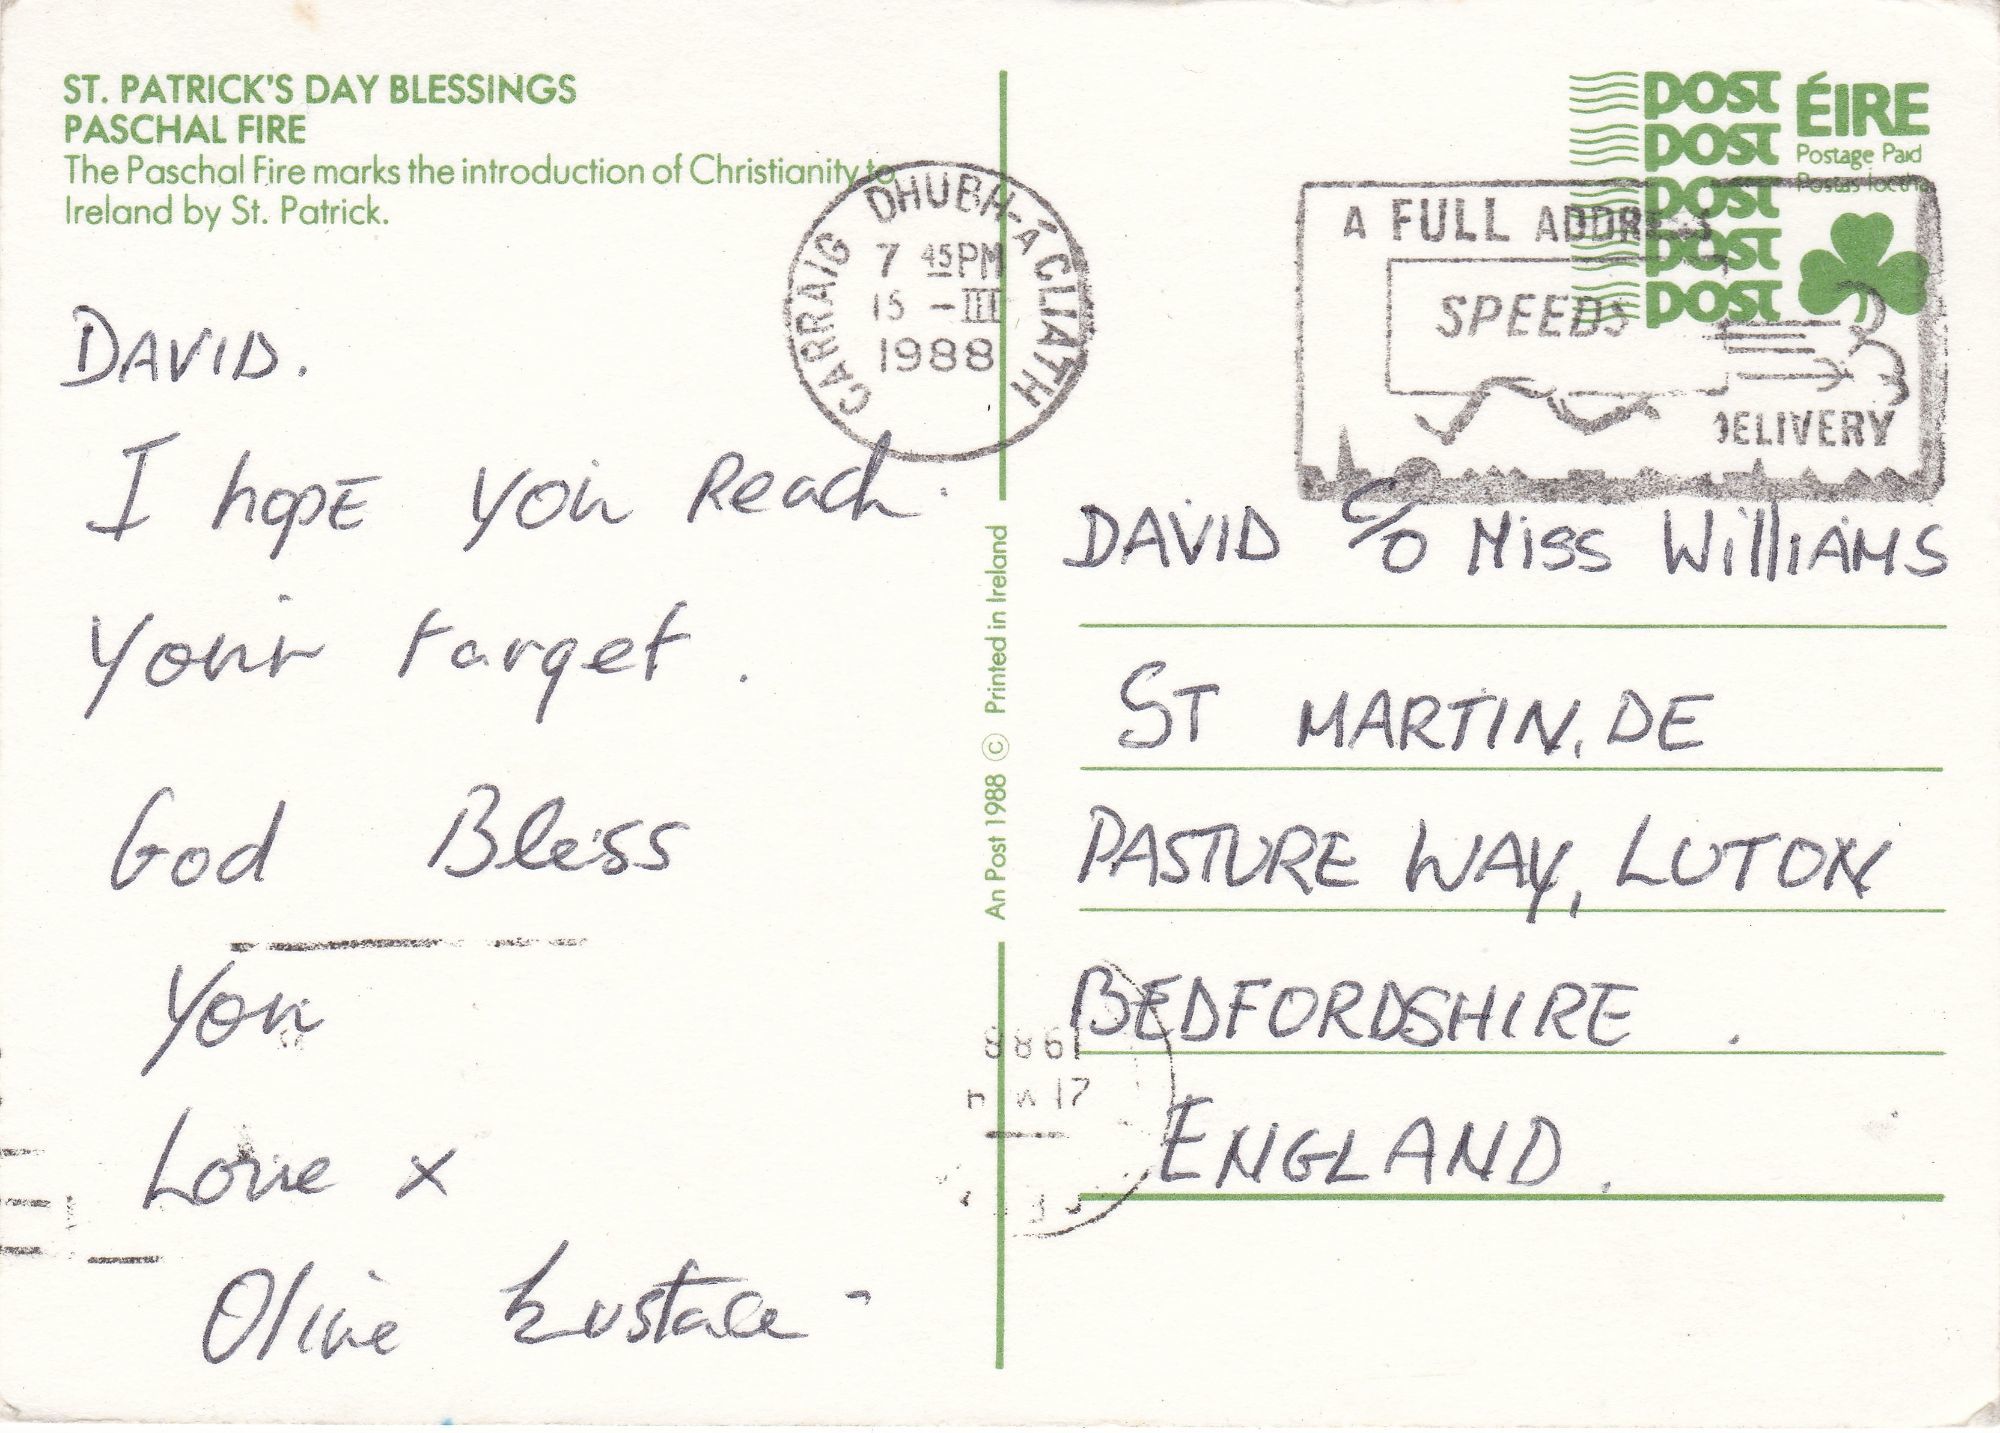 ST. PATRICK'S DAY BLESSINGS
PASCHAL FIRE
The Paschal Fire marks the introduction of Christianity to
Ireland by St. Patrick.
POST
POST
POST
POST
POST
ÉIRE
Postage Paid
Postas íoctha
CARRAIG DHUBH-Á CLIATH
7 45PM
15 - III
1988
A FULL ADDRESS
SPEEDS
DELIVERY
DAVID.
I hope you Reach
Your target.
God Bless
You
Love x
Olive Eustace
An Post 1988 © Printed in Ireland
DAVID c/o MISS WilliAMS
ST MARTIN, DE
PASTURE WAY, LUTON
BEDFORDSHIRE.
ENGLAND.
1988
17